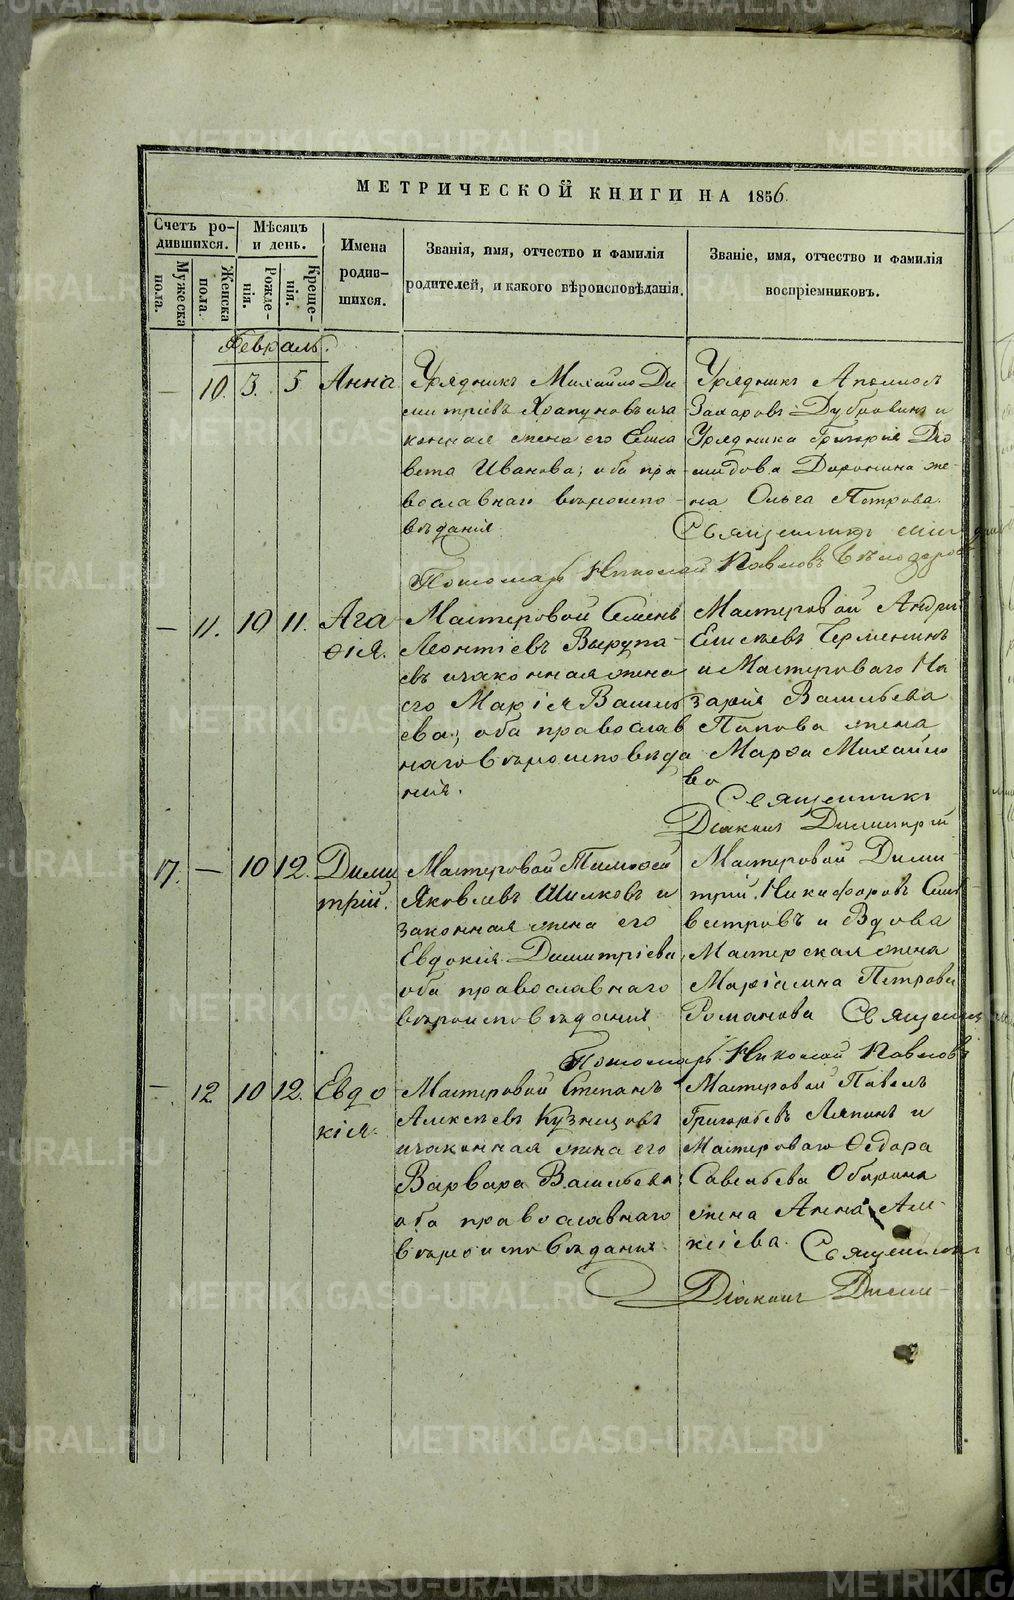 МЕТРИЧЕСКОЙ КНИГИ НА 1856
Счетъ ро-
дившихся.
Мужеска
пола.
Женска
пола.
Мѣсяцъ
и день.
Рожде-
нія.
Креще-
нія.
Имена
родив-
шихся.
Званія, имя, отчество и фамилія
родителей, и какого вѣроисповѣданія.
Званіе, имя, отчество и фамилія
воспріемниковъ.
Февраль.
— 10. 3. 5 Анна
Урядникъ Михайло Ди
митріевъ Храпуновъ иза
конная жена его Елиса
вета Иванова; оба пра-
вославнаго вѣроиспо-
вѣданія
Урядникъ
Захаровъ Дубровинъ и
Урядника Григорія Де
мидова Доронина же-
на Ольга Петрова.
Священникъ
Пономарь Николай Павловъ Бѣлозеровъ
— 11. 10 11. Ага
ѳія.
Мастеровой Семенъ
Леонтіевъ Вырупа-
евъ изаконная жена
его Марія Василь
ева; оба православ
наго вѣроисповѣда
нія.
Мастеровой Андрей
Елисѣевъ Черменинъ
и Мастероваго На
зарія Васильева
Попова жена
Марѳа Михайло
ва
Священникъ
Діаконъ Димитрій
17. — 10 12. Дими
трій.
Мастеровой Тимоѳей
Яковлевъ Шилковъ и
законная жена его
Евдокія Димитріева;
оба православнаго
вѣроисповѣданія
Мастеровой Дими-
трій Никифоровъ Сили
вестровъ и Вдова
Мастерская жена
Маріамна Петрова
Романова Священни
Пономарь Николай Павловъ
— 12 10 12. Евдо
кія.
Мастеровой Степанъ
Алексѣевъ Кузнецовъ
изаконная жена его
Варвара Васильева;
оба православнаго
вѣроисповѣданія.
Мастеровой Павелъ
Григорьевъ Ляпинъ и
Мастероваго Ѳедора
Савельева Обарина
жена Анна Але-
ксіева. Священникъ
Діаконъ Дими-
METRIKI.GASO-URAL.RU